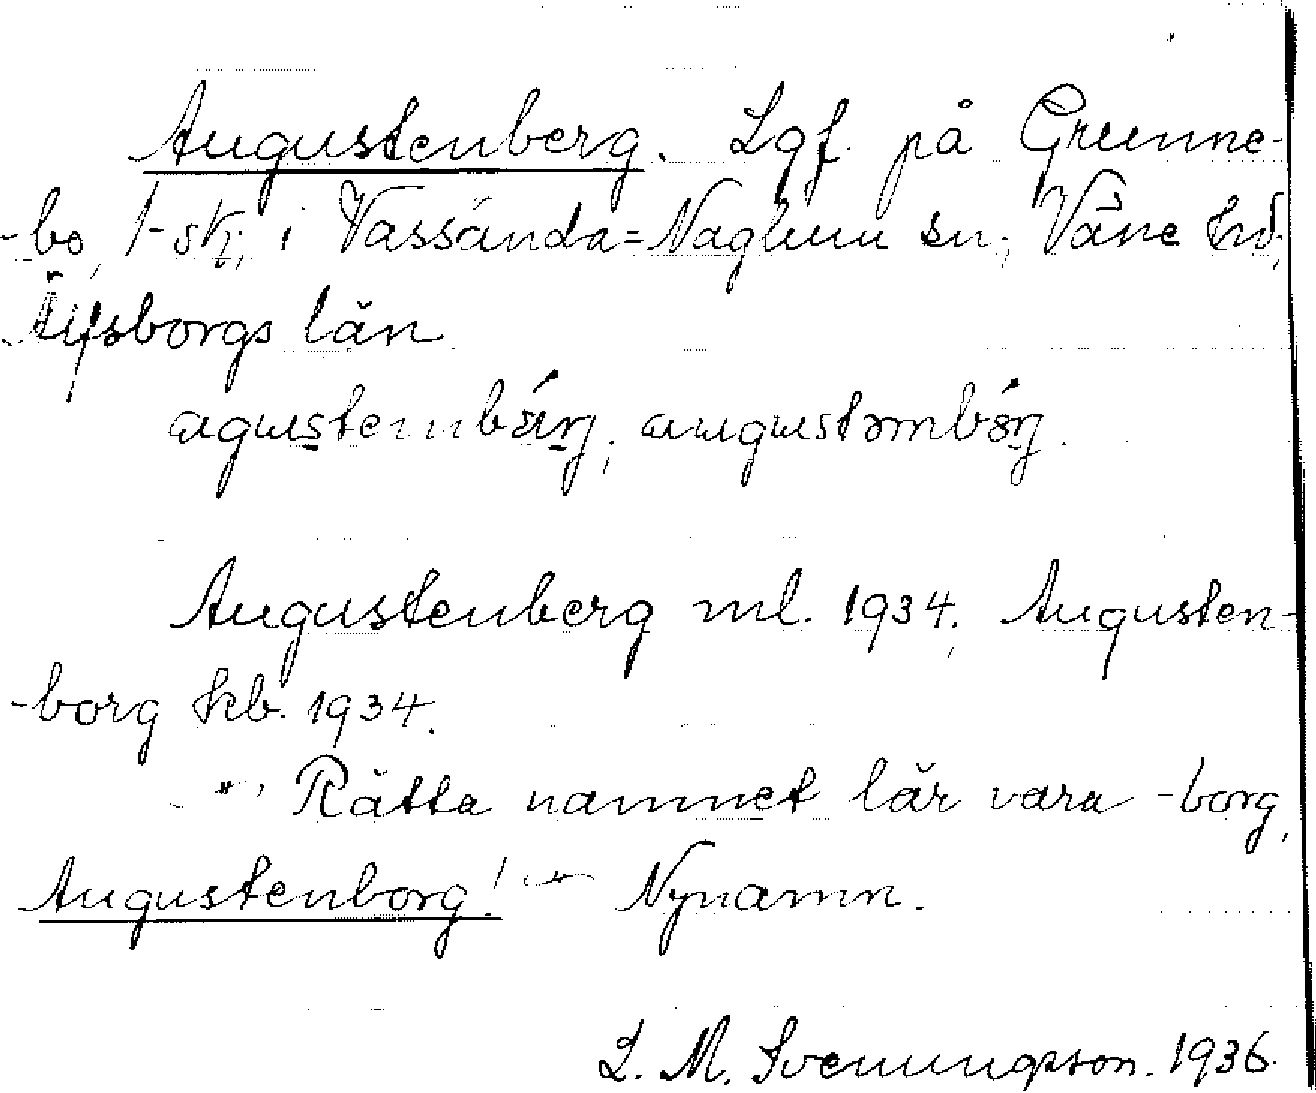 Augustenberg. Lgf. på Grunne-
-bo, 1-sk; i Vassända=Naglum sn; Väne hd,
Älfsborgs län
Augustenberg ml. 1934; Augusten-
-borg kb. 1934.
Rätta namnet lär vara -borg,
Augustenborg! — Nynamn.
L. M. Svenungsson. 1936.